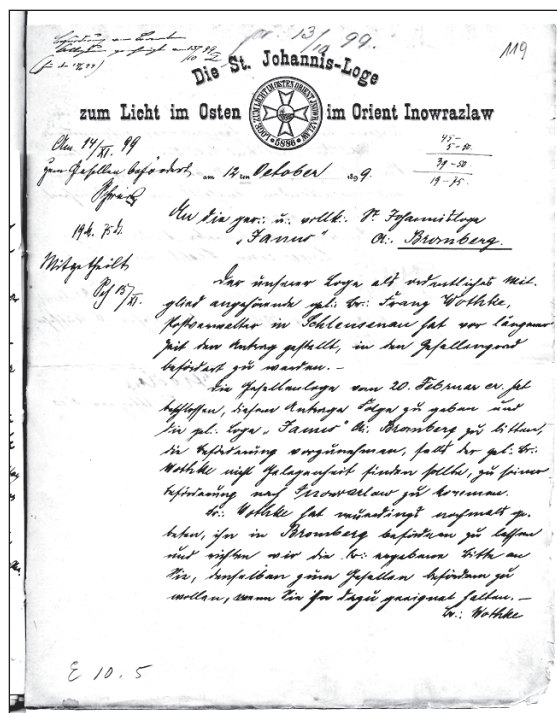 pr. 13/10 99.
119
Die St. Johannis-Loge
zum Licht im Osten im Orient Inowrazlaw
LOGE ZUM LICHT IM OSTEN ORIENT INOWRAZLAW
5886
Am 14/XI. 99
zum Gesellen befördert
am 12ten October 1899.
45-
5-50.
39-50.
19-75.
19 M. 75 d.
An die ger: u: vollk: St. Johannisloge
"Janus" Or: Bromberg.
Mitgetheilt
15/XI.
Der unserer Loge als ordentliches Mit-
glied angehörende gel: Br: Franz Wothke,
Postverwalter in Schleusenau hat vor längerer
Zeit den Antrag gestellt, in den Gesellengrad
befördert zu werden. –
Die Gesellenloge vom 20. Februar cr. hat
beschlossen, diesem Antrage Folge zu geben und
die gel: Loge "Janus" Or: Bromberg zu bitten,
die Beförderung vorzunehmen, falls der gel: Br:
Wothke nicht Gelegenheit finden sollte, zu seiner
Beförderung nach Inowrazlaw zu kommen.
Br: Wothke hat neuerdings nochmals ge-
beten, ihn in Bromberg befördern zu lassen
und richten wir die br: ergebene Bitte an
Sie, denselben zum Gesellen befördern zu
wollen, wenn Sie ihn dazu geeignet halten. –
Br: Wothke
E 10.5